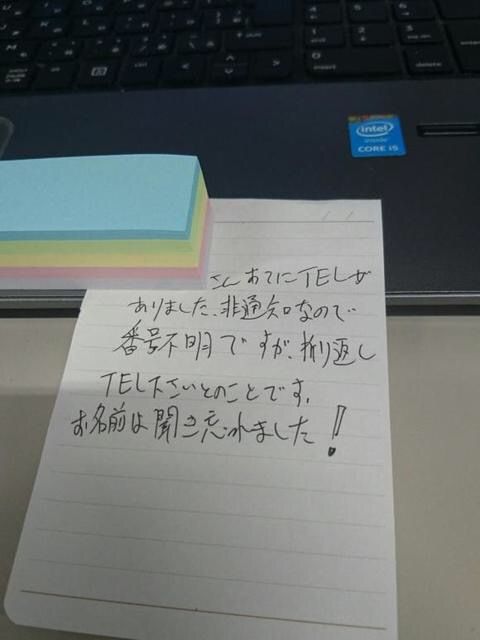 さん あてにTELが
ありました、非通知なので
番号不明ですが、折り返し
TEL下さいとのことです。
お名前は聞き忘れました!
intel
inside
CORE i5
insert
delete